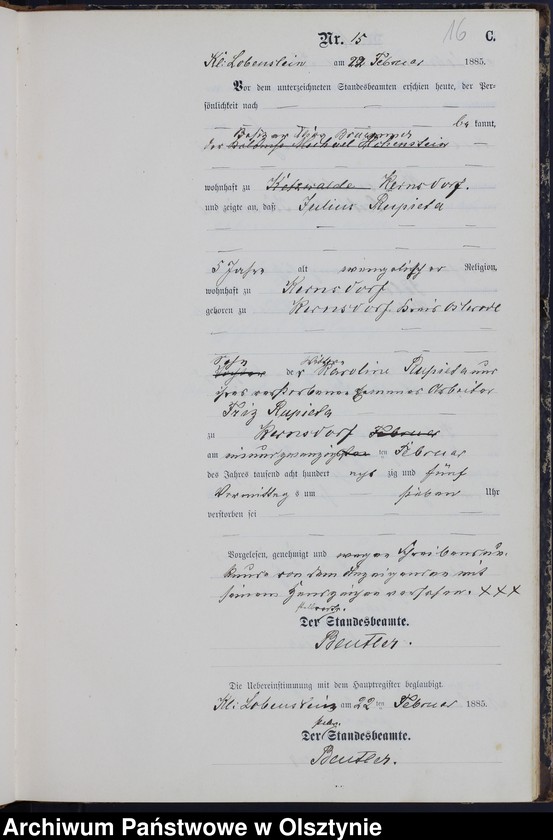 16
Nr. 15 C.
Kl. Lobenstein am 22 Februar 1885.
Vor dem unterzeichneten Standesbeamten erschien heute, der Per-
sönlichkeit nach
bekannt,
Besitzer
der Michael Hohenstein
wohnhaft zu Kernsdorf.
und zeigte an, daß Julius Rupieta
5 Jahre alt evangelischer Religion,
wohnhaft zu Kernsdorf
geboren zu Kernsdorf Kreis Osterode
Sohn
der Wittwe Karoline Rupieta und
ihres verstorbenen Arbeiter
Friz Rupieta
zu Kernsdorf Februar
am einundzwanzigsten ten Februar
des Jahres tausend acht hundert achtzig und fünf
Vormittag s um sieben Uhr
verstorben sei
Vorgelesen, genehmigt und wegen Schreibensun-
kunde von dem Anzeigenden mit
seinem Handzeichen versehen. XXX
Der Standesbeamte.
Beutler.
Die Uebereinstimmung mit dem Hauptregister beglaubigt.
Kl. Lobenstein am 22 ten Februar 1885.
Der Standesbeamte.
Beutler.
Archiwum Państwowe w Olsztynie